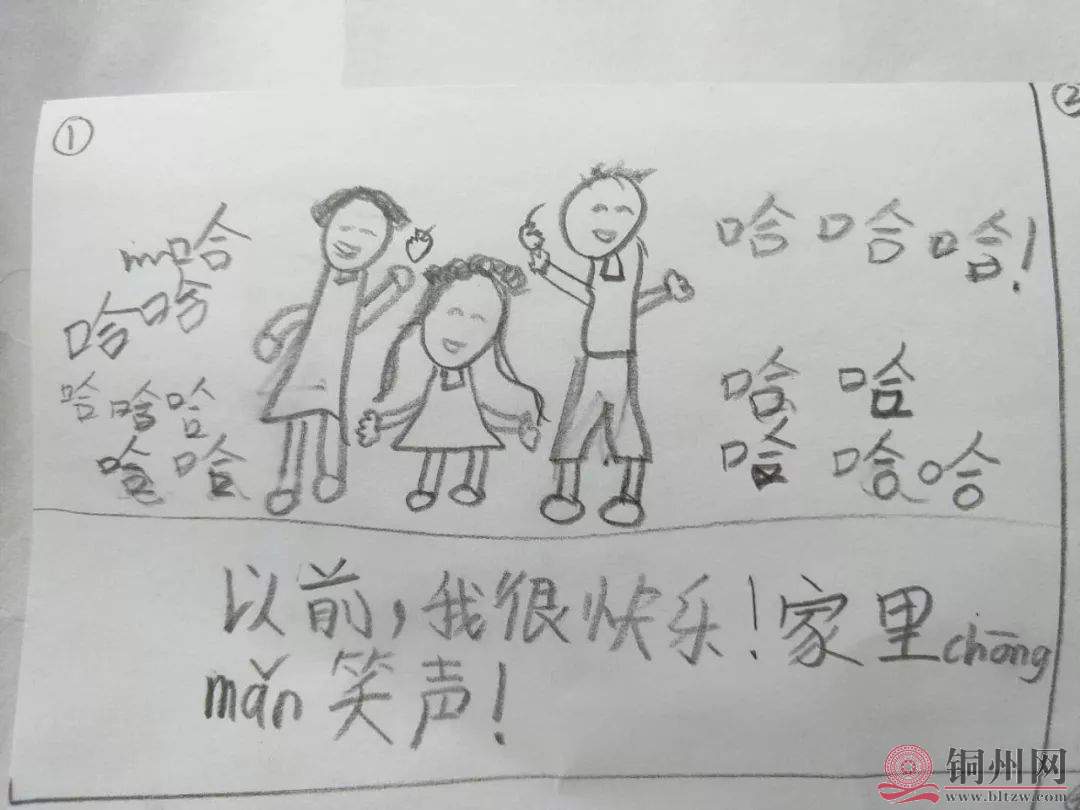 ①
②
哈
哈哈
哈哈哈
哈哈
哈哈哈！
哈哈
哈哈哈
以前，我很快乐！家里chōng
mǎn笑声！
铜州网
www.bltzw.com